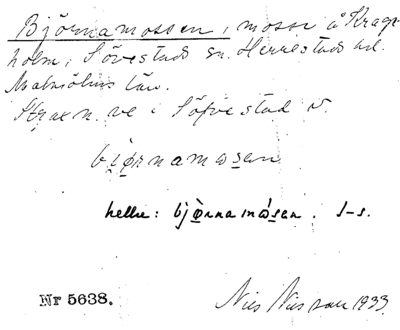 Björnamossen, mosse å Krage-
holm, Sövestads sn. Herrestads hd.
Malmöhus län.
Strax n. v. i Söfvestad v.
bi̯ø̱rnamo̱sen
hellre: bjø̱rnamò̱sen. J-s.
Nr 5638.
Nils Nilsson 1933